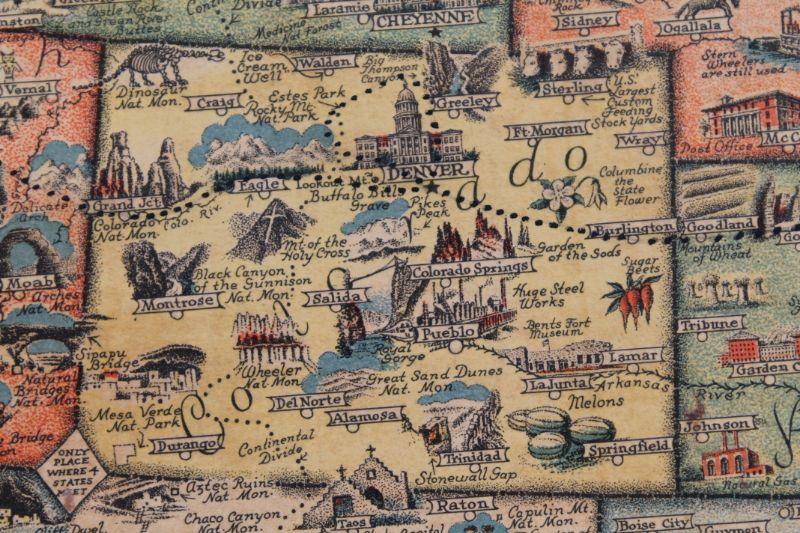 Little Rock
and Green River
Buttes
Continental
Divide
Medicine
Laramie
CHEYENNE
Rock
Sidney
Ogallala
Stern
Wheelers
are still used
Vernal
Dinosaur
Nat. Mon.
Craig
Ice
Cream
Well
Walden
Big
Thompson
Canyon
Estes Park
Rocky Mt.
Nat. Park
Greeley
Sterling
U.S.
Largest
Custom
Feeding
Stock Yards
Ft. Morgan
Wray
Post Office
DENVER
Eagle
Lookout Mt.
Buffalo Bill's
Grave
Pikes
Peak
Columbine
the State
Flower
Grand Jct.
Colo. Riv.
Colorado
Nat. Mon.
Mt of the
Holy Cross
Burlington
Goodland
Delicate
Arch
Moab
Arches
Nat. Mon.
Black Canyon
of the Gunnison
Nat. Mon.
Montrose
Salida
Colorado Springs
Garden
of the Gods
Mountains
of Wheat
Sugar
Beets
Huge Steel
Works
Pueblo
Bents Fort
Museum
Tribune
Sipapu
Bridge
Natural
Bridges
Nat. Mon.
Wheeler
Nat. Mon.
Royal
Gorge
Great Sand Dunes
Nat. Mon.
LaJunta
Lamar
Arkansas
River
Garden
Mesa Verde
Nat. Park
Del Norte
Alamosa
Melons
Durango
Continental
Divide
Trinidad
Stonewall Gap
Springfield
Johnson
Natural Gas
Colorado
ONLY
PLACE
WHERE 4
STATES
MEET
Aztec Ruins
Nat. Mon.
Chaco Canyon
Nat. Mon.
Taos
Raton
Capulin Mt
Nat. Mon.
Boise City
Guymon